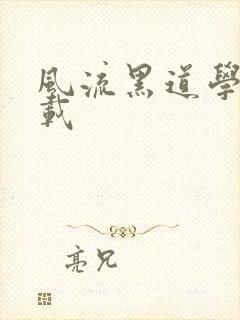 風流黑道學
載
亮兄